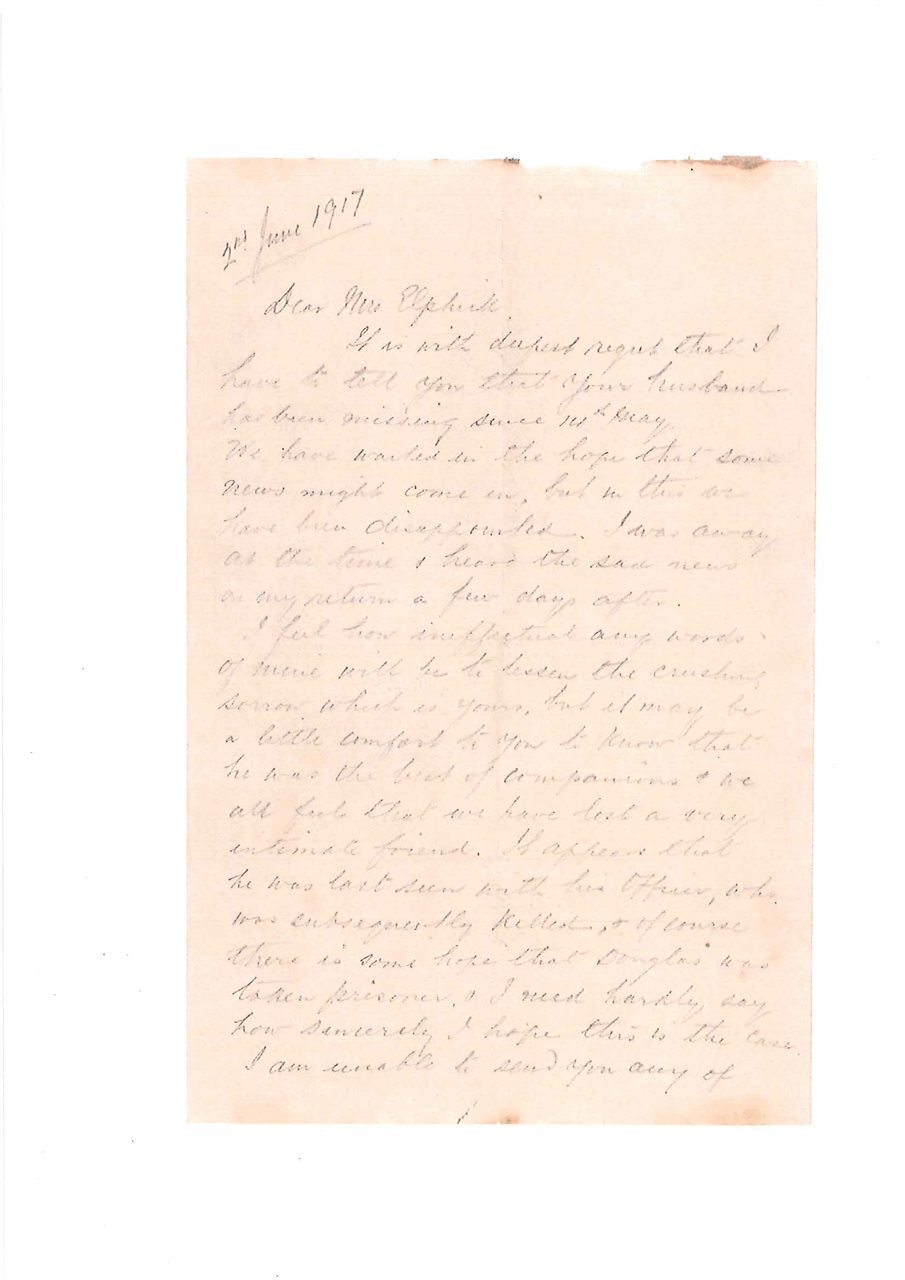 2nd June 1917
Dear Mrs Elphick
It is with deepest regret that I
have to tell you that your husband
has been missing since 14th May.
We have waited in the hope that some
news might come in, but in this we
have been disappointed. I was away
at the time & heard the sad news
on my return a few days after.
I feel how ineffectual any words
of mine will be to lessen the crushing
sorrow which is yours, but it may be
a little comfort to you to know that
he was the best of companions & we
all feel that we have lost a very
intimate friend. It appears that
he was last seen with his Officer, who
was subsequently killed, & of course
there is some hope that Douglas was
taken prisoner, & I need hardly say
how sincerely I hope this is the case.
I am unable to send you any of